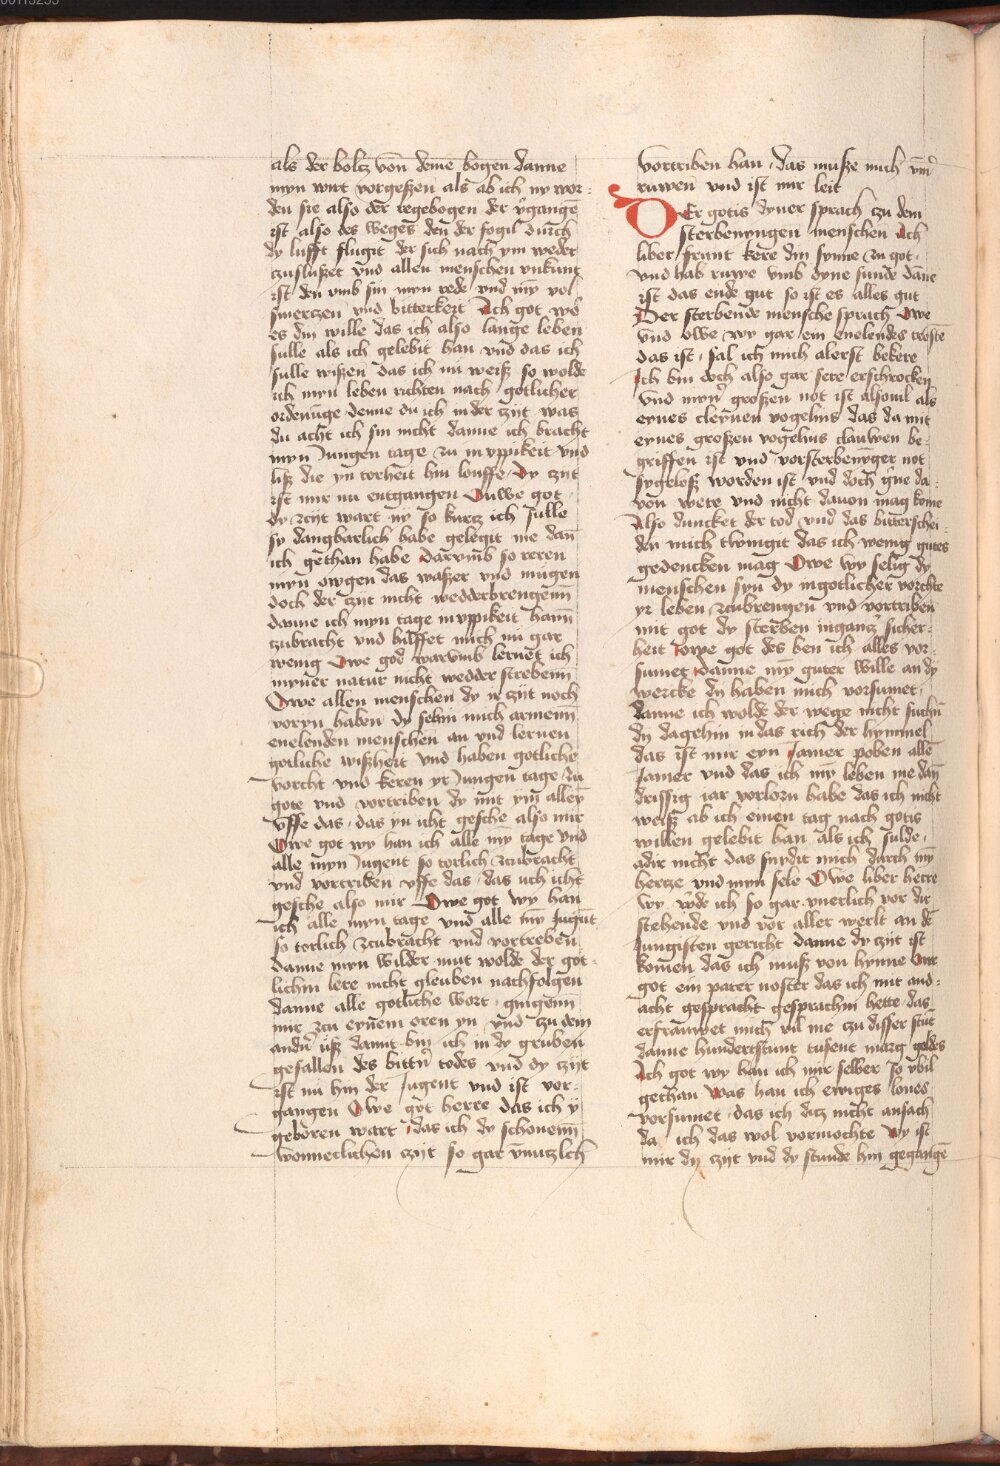 als der boltz von deme bogen danne
myn wirt vorgeßen als ab ich ny wor-
den sie also der regebogen der v̓gangē
ist also des weges den der fogil durch
dy lufft flugit der sich nach ym weder
czuslußet vnd allen menschen vnkunt
ist den vmb sin myn rede vnd my̅ vol
smerczen vnd bitterkeit Ach got wo
es din wille das ich also lange leben
sulle als ich gelebit han vnd das ich
sulle wißen das ich nu weiß so wolde
ich myn leben richten nach gotlicher
ordenūge denne du ich in der czijt was
du acht ich sin nicht danne ich bracht
myn Jungen tage zu in vppikeit vnd
liß die yn torheit hin louffe Dy czijt
ist mir nu entgangen Ouwe got
dy zcijt wart ny so kurcz ich sulle
sy dangbarlich habe gelegit me dan̄
ich gethan habe Darvmb so reren
myn owgen das waßer vnd mūgen
doch der czijt nicht wedderbrengenn
danne ich myn tage in vppikeit hann
zubracht vnd hilffet mich nu gar
wenig Owe god warvmb lernet ich
myner natur nicht wedder strebenn
Owe allen menschen dy ir zijt noch
voryn haben dy sehin mich armenn
enelenden menschen an vnd lernen
gotliche wißheit vnd haben gotliche
vorcht vnd keren yr Jungen tage zu
gote vnd vortriben dy mit ym alley̅
vffe das das yn icht gesche also mir
Owe got wy han ich alle my̅ tage vnd
alle myn Jugent so torlich zcubracht
vnd vortriben vffe das das uch icht
gesche also mir Owe got wy han
ich alle myn tage vnd alle my̅ Jugūt
so torlich zcubracht vnd vortreben
danne myn wilder mut wolde der got-
lichin lere nicht gleuben nachfolgen
danne alle gotliche wort gingenn
mir zcu eynem oren yn vnd zu dem
andn̓ uß damit bin ich in dy gruben
gefallen des bittn̓ todes vnd dy zijt
ist nu hin der Jugent vnd ist vor-
gangen Owe got herre das ich ÿ
geboren wart das ich dy schonenn
wonneclichen czijt so gar vnnutzlch
vortriben han das muße mich vm̓
ruwen vnd ist mir leit
DEr gotis dyner sprach zu dem
sterbennngen menschen Ach
liber frunt kere din synne zu got
vnd hab ruwe vmb dyne sunde dāne
ist das ende gut so ist es alles gut
Der sterbende mensche sprach Owe
vnd owe wy gar ein enelendes trostē
das ist sal ich mich alerst bekere
Ich bin doch also gar sere erschrocken
vnd myn̓ großen not ist alsouil als
eynes cleynen vogelins das da mit
eynes großen vogelins clauwen be-
griffen ist vnd vorsterbennger not
syneloß worden ist vnd doch g̓ne da-
von were vnd nicht dauon mag kome
Also duncket der tod vnd das bitterschei-
den mich twingit das ich wenig gutes
gedencken mag Owe wy selig dy
menschen syn dy in gotlicher vorchte
yr leben zcubrengen vnd vortriben
mit got dy sterben in gantz̓ sicher-
heit Owe got des ben ich alles vor-
sumet danne my̅ guter wille an dy
wercke dy haben mich vorsumet
danne ich wolde der wege nicht suchn̄
dy dagehin in das rich der hymmel
das ist mir eyn Jamer poben allē
Jamer vnd das ich my̅ leben me dan̄
drissig iar vorlorn habe das ich nicht
weiß ab ich einen tag nach gotis
willen gelebit han als ich sulde
adir nicht das snydit mich durch my̅
hertze vnd myn sele Owe liber herre
wy w̓de ich so gar vnerlich vor dir
stehende vnd vor aller werlt an dē
Jungisten gericht danne dy zijt ist
komen das ich muß von hynne Owe
got ein pater noster das ich mit and-
acht gespracht gesprachin hette das
erfrauwet mich vil me zu disser stūt
danne hundertstunt tusent marg goldes
Ach got wy han ich mir selber so vbil
gethan Was han ich ewiges lones
vorsumet das ich dicz nicht ansach
da ich das wol vormochte Wy ist
mir dy zijt vnd dy stunde hin gegangē